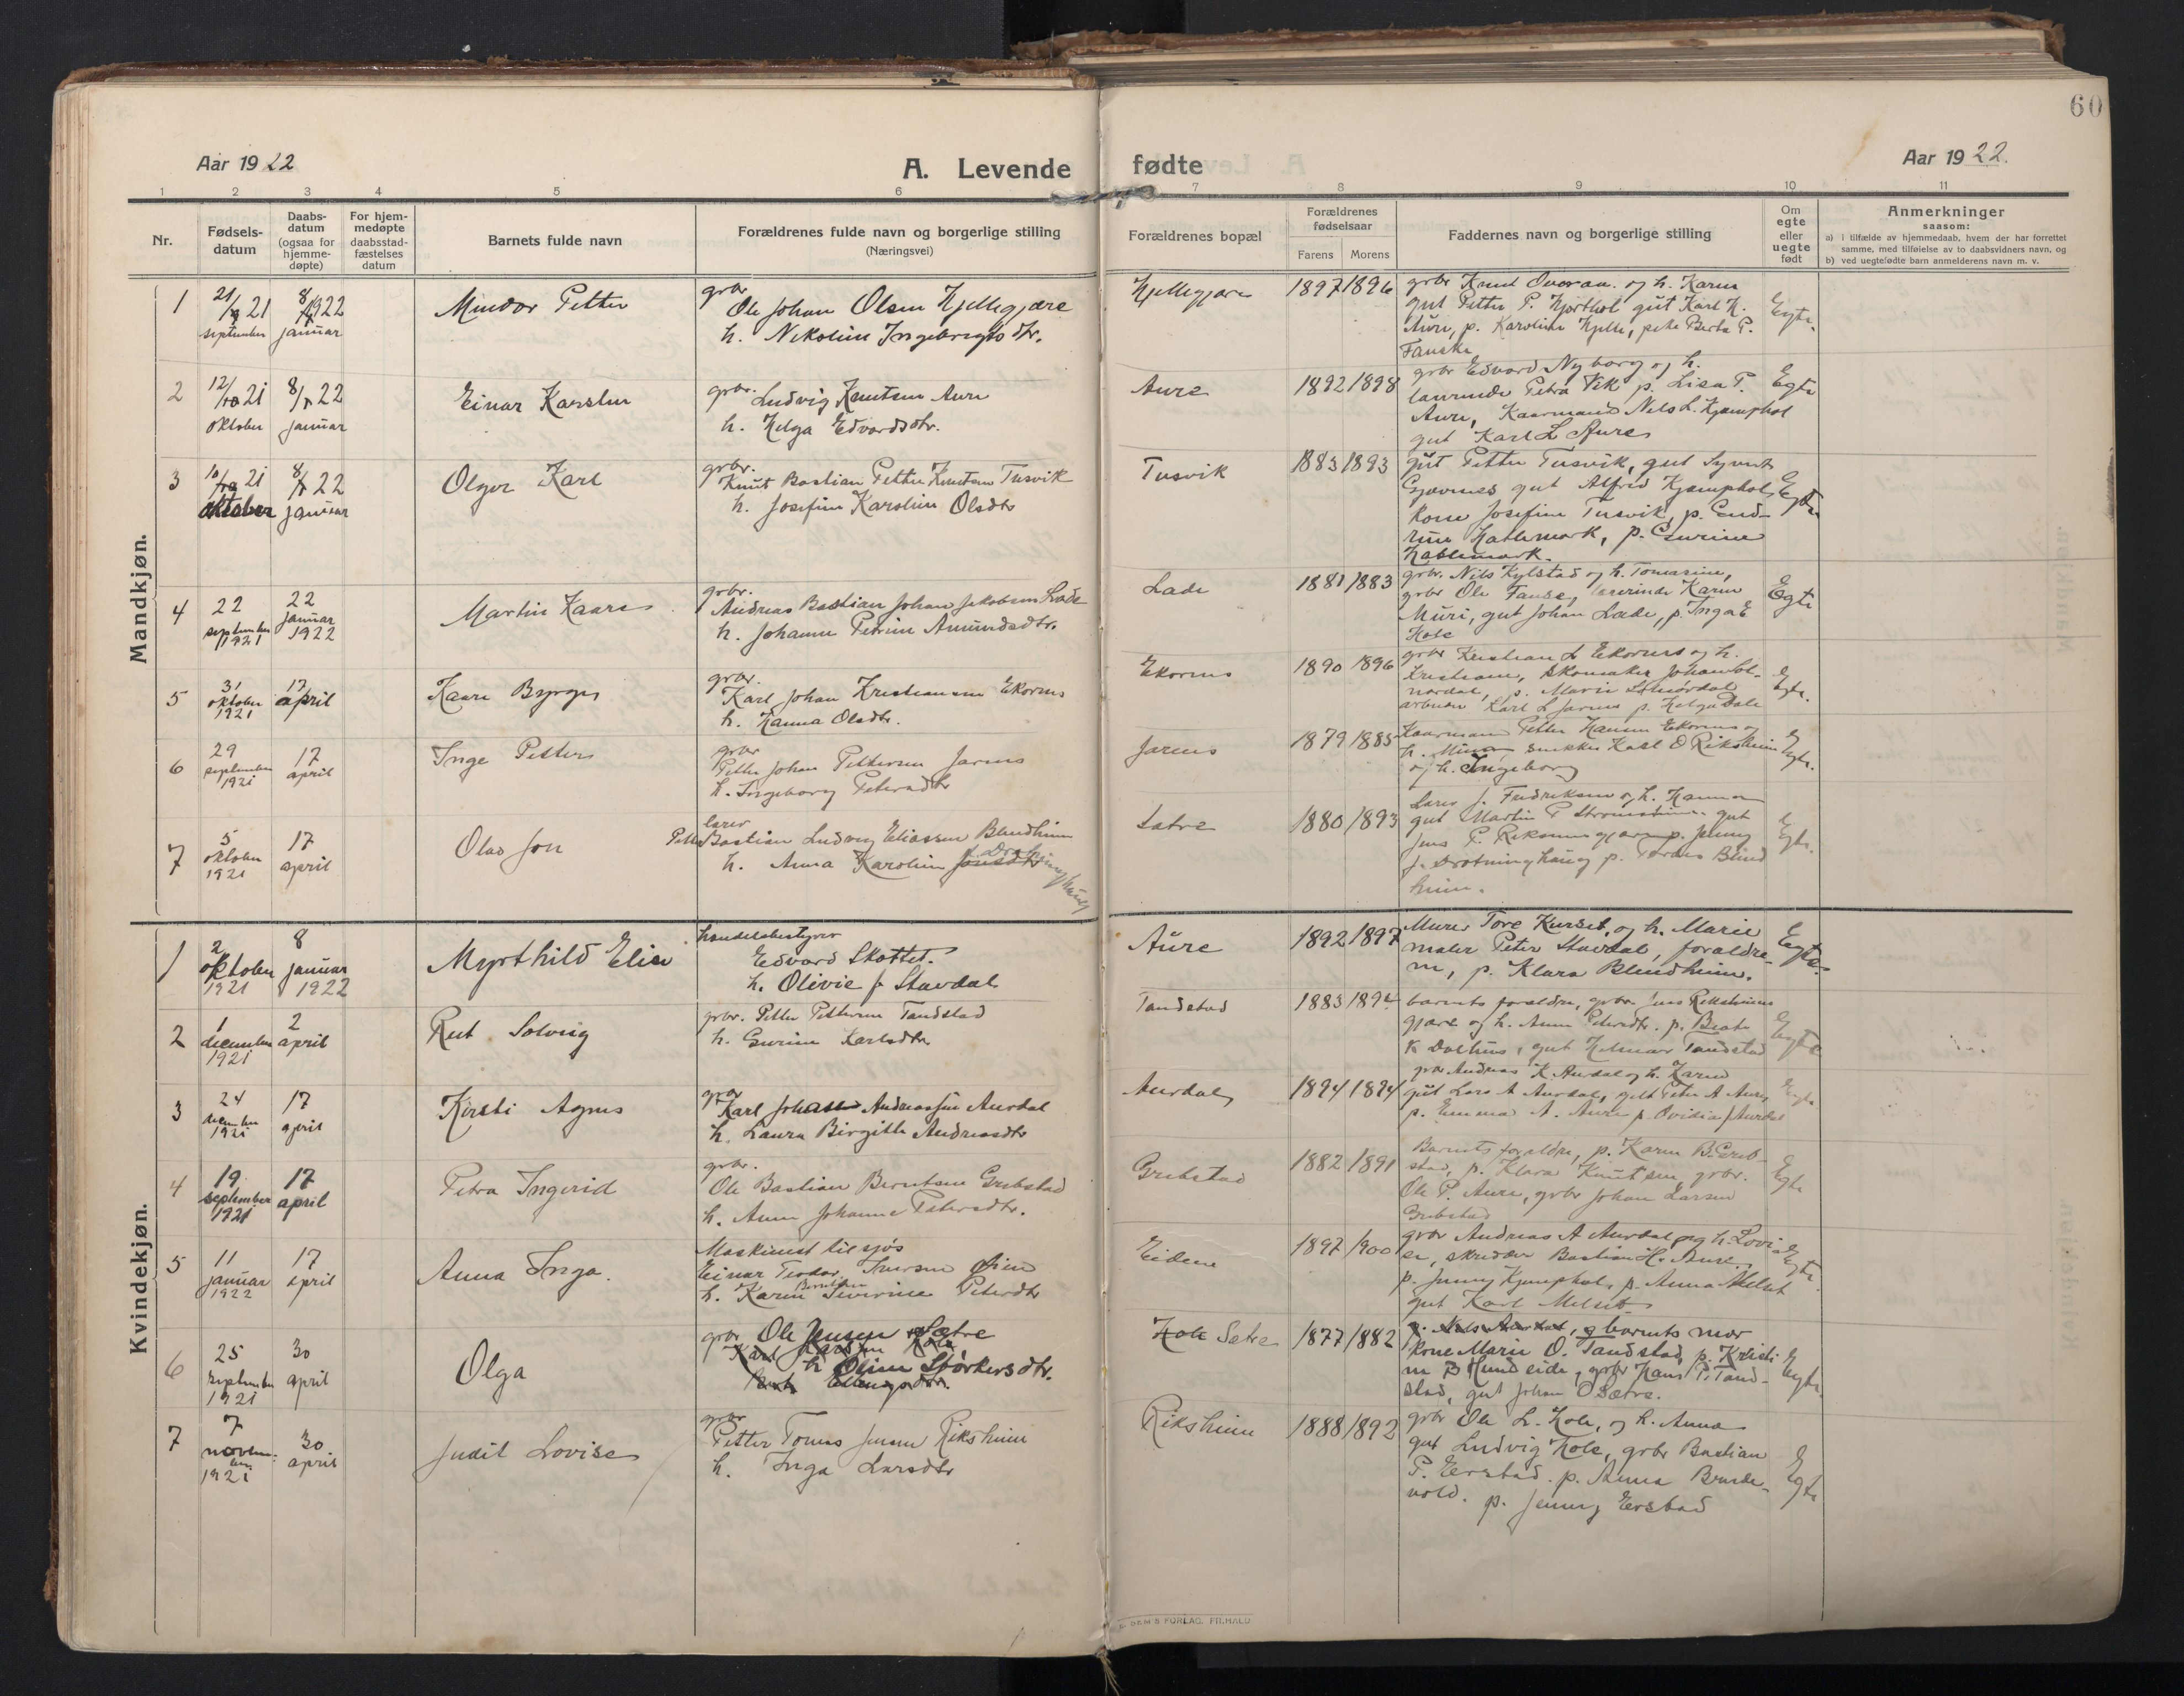 60
Aar 1922
A. Levende fødte
Aar 1922.
1 2 3 4 5 6 7 8 9 10 11
Nr.
Fødsels-
datum
Daabs-
datum
(ogsaa for
hjemme-
døpte)
For hjem-
medøpte
daabsstad-
fæstelses
datum
Barnets fulde navn
Forældrenes fulde navn og borgerlige stilling
(Næringsvei)
Forældrenes bopæl
Forældrenes
fødselsaar
Farens Morens
Faddernes navn og borgerlige stilling
Om
egte
eller
uegte
født
Anmerkninger
saasom:
a) i tilfælde av hjemmedaab, hvem der har forrettet
samme, med tilføielse av to daabsvidners navn, og
b) ved uegtefødte barn anmelderens navn m. v.
Mandkjøn.
1
21/9 21
september
8/1 1922
januar
Mindor Petter
grbr
Ole Johan Olsen Hjellegjære
h. Nikoline Ingebrigtsdtr.
Hjellegjære
1897 1896
grbr Knut Overaa og h. Karen
gut Petter P. Hjorthol gut Karl K.
Aure, p. Karoline Hjelle, pike Berta P.
Fauske
Egte.
2
12/10 21
oktober
8/1 22
januar
Einar Karsten
grbr. Ludvig Knutsen Aure
h. Helga Edvardsdtr.
Aure
1892 1898
grbr Edvard Nyborg og h.
lærerinde Petra Vik p. Lisa P.
Aure, Kaarmand Nils L. Kjemphol
gut Karl L Aure
Egte
3
10/10 21
oktober
8/1 22
januar
Olger Karl
grbr.
Knut Bastian Petter Knutsen Tusvik
h. Josefine Karoline Olsdtr
Tusvik
1883 1893
gut Petter Tusvik, gut Syvert
gut Alfred Kjemphol,
kone Josefine Tusvik, p. Gud-
run Hatlemark, p. Gurine
Hatlemark.
Egte
4
22
september
1921
22
januar
1922
Martin Kaare
grbr.
Andreas Bastian Johan Jakobsen Lade
h. Johanne Petrine Amundsdtr.
Lade
1881 1883
grbr. Nils Hylstad og h. Tomasine,
grbr Ole Fauske, lærerinde Karen
Muri, gut Johan Lade, p. Inga E
Hole
Egte
5
31
oktober
1921
17
april
Kaare Byrge
grbr.
Karl Johan Kristiansen Ekornes
h. Hanna Olsdtr.
Ekornes
1890 1896
grbr Kristian L Ekornes og h.
Kristiane, skomaker Johan Sol-
nørdal, p. Marie Solnørdal
arbeider Karl L Jarnes p. Helga Dale
Egte.
6
29
september
1921
17
april
Inge Petter
grbr
Petter Johan Pettersen Jarnes
h. Ingeborg Petersdtr
Jarnes
1879 1885
Kaarmand Petter Hansen Ekornes og
h. Mina snekker Karl O Riksheim
og h. Ingeborg
Egte.
7
5
oktober
1921
17
april
Olav Jon
lærer
Petter Bastian Ludvig Eliassen Blindheim
h. Anna Karoline Jonsdtr f. Drotninghaug
Sætre
1880 1893
Lars J. Fredriksen og h. Hanna
gut Martin P Strømsheim gut
Jens P. Riksheimgjære p. Jenny
J. Drotninghaug p. Blind
heim.
Egte.
Kvindekjøn.
1
2
oktober
1921
8
januar
1922
Myrthild Elise
handelsbestyrer
Edvard Skottet.
h. Olivie f. Stavdal
Aure
1892 1897
Murer Tore Kurset, og h. Marie
maler Peter Stavdal, foraldre-
ne, p. Klara Blindheim.
Egte.
2
1
december
1921
2
april
Rut Solveig
grbr. Petter Pettersen Tandstad
h. Gurine Karlsdtr
Tandstad
1883 1894
barnets foraldre, grbr. Jens Riksheims
gjære og h. Anne Petersdtr. p. Beate
K Dalhus, gut Helmar Tandstad
Egte
3
24
december
1921
17
april
Kirsti Agnes
grbr
Karl Johan Andreassen Aurdal
h. Laura Birgitte Andreasdtr
Aurdal
1894 1894
grbr Andreas K. Aurdal og h. Karen
gut Lars A Aurdal, gut Peter A Aure
p. Emma A. Aure p. Ovidia J Aurdal
Egte
4
19
september
1921
17
april
Petra Ingerid
grbr.
Ole Bastian Berntsen Grebstad
h. Anne Johanne Petersdtr.
Grebstad
1882 1891
Barnets foraldre, p. Karen B. Greb-
stad, p. Klara Knutsen, grbr.
Ole P. Aure, grbr Johan Larsen
Grebstad
Egte
5
11
januar
1922
17
april
Anna Inga.
Maskinist til sjøs
Einar Teodor Iversen Øien
h. Karen Berntine Severine Petersdtr
Eidene
1897 1900
grbr Andreas A Aurdal og h. Lovi
se, skrædder Bastian H. Aure,
p. Jenny Kjemphol, p. Anna Melset
gut Karl Melset
Egte.
6
25
september
1921
30
april
Olga
grbr Ole Jensen Sætre
Karl Larsen Hole
h Oline Størkersdtr.
Ellingsdtr.
Hole Sætre
1877 1882
p. Nils Aurdal, og barnets mor
kone Marie O. Tandstad, p. Kristi
ne P Hundeide, grbr Hans P. Tand-
stad, gut Johan O Sætre.
Egte.
7
7
novem-
ber
1921
30
april
Judit Lovise
grbr
Petter Tomas Jensen Riksheim
h. Inga Larsdtr
Riksheim
1888 1892
grbr Ole L. Hole, og h. Anna
gut Ludvig Hole, grbr Bastian
P. Eerstad. p. Anna Brude-
vold. p. Jenny Eerstad
Egte
SEM'S FORLAG. FR.HALD